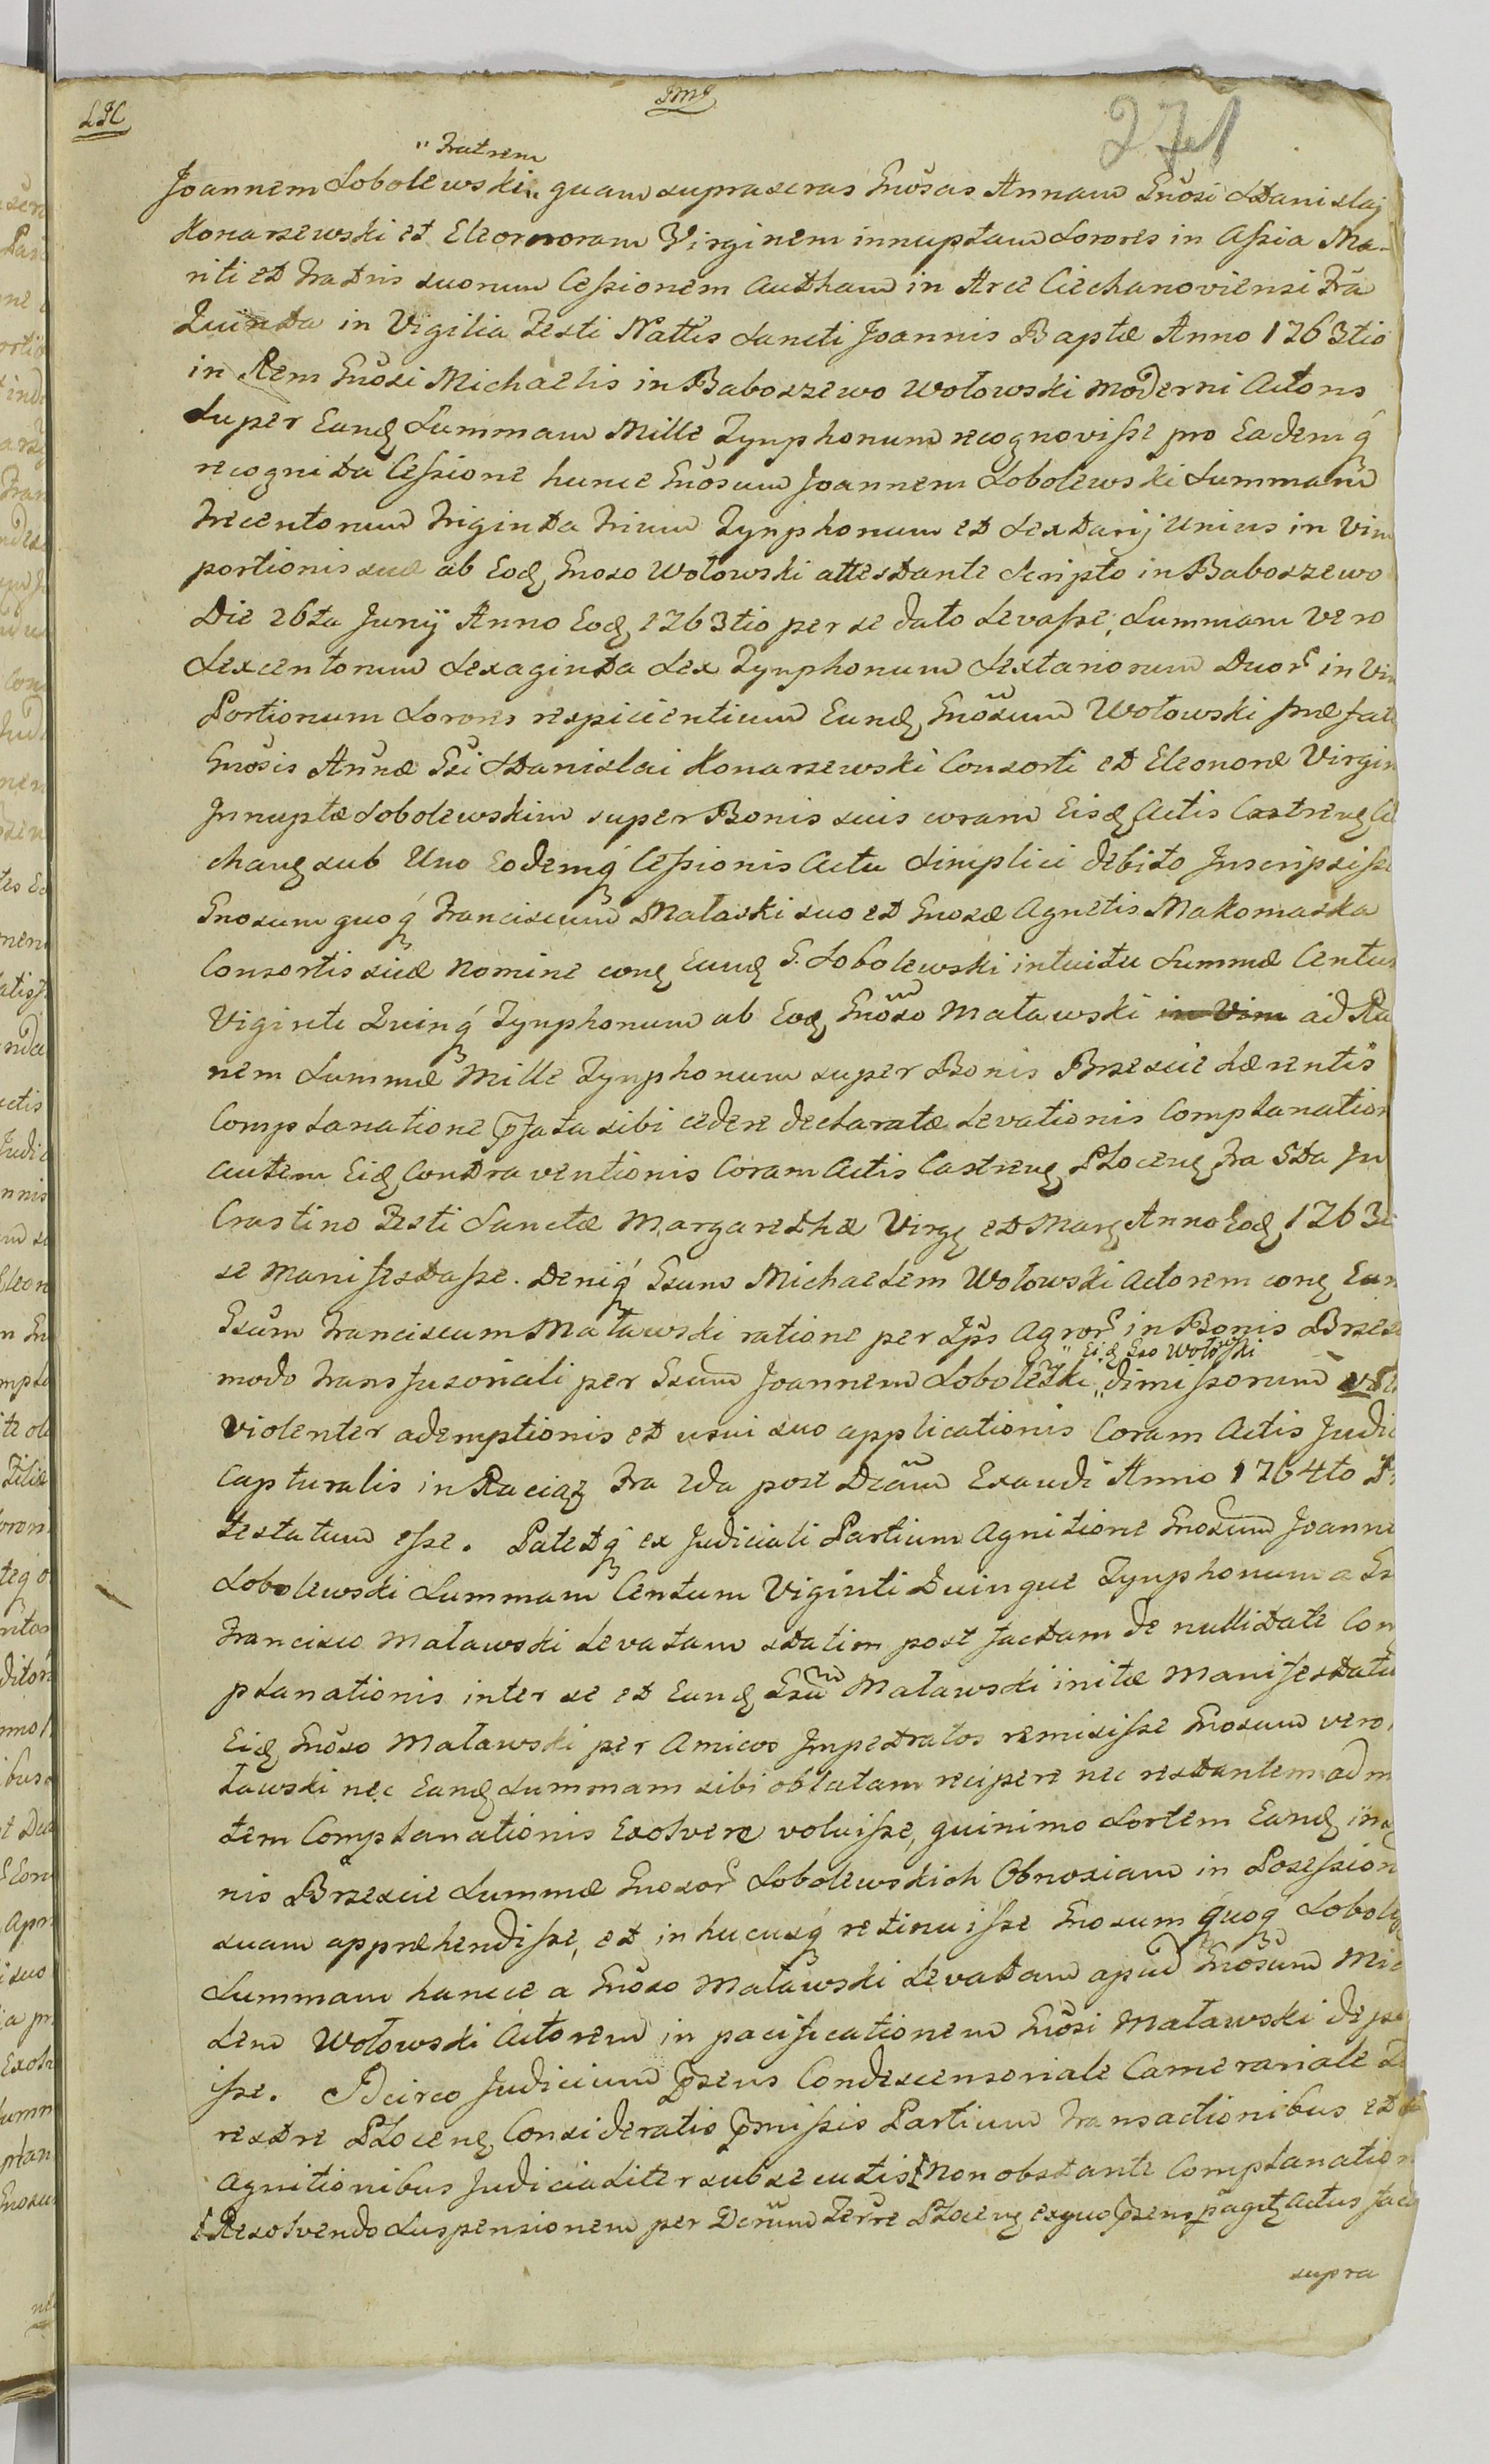 LJC
JMJ
271
" Fratrem
Joannem Sobolewski " quam supraseras Gnosas Annam Gnosi Stanislaj
Konarzewski et Eleonoram Virginem innuptam Sorores in Assia Ma-
riti et Fratris suorum Cessionem Autham in Arce Ciechanoviensi Fra
Quinta in Vigilia Festi Nattis Sancti Joannis Baptæ Anno 1763tio
in Rem Gnosi Michaelis in Baboszewo Wołowski Moderni Actoris
Super Eandę Summam Mille Tynphonum recognovisse pro Eademq́
recognita Cessione hunce Gnosum Joannem Sobolewski Summam
Trecentorum Triginta Trium Tynphonum et Sextarij Unius in Vim
portionis suæ ab Eodę Gnoso Wołowski attestante Scripto in Baboszewo
Die 26ta Junij Anno Eodę 1763tio per se dato Levasse, Summam Vero
Sexcentorum Sexaginta Sex Tynphonum Sextariorum Duor in Vim
Portionum Sorores respicientium Eundę Gnosum Wołowski præfat
Gnosis Annæ Gsi Stanislai Konarzewski Consorti et Eleonoræ Virgin
Innuptæ Sobolewskim super Bonis suis coram Eisdę Actis Castreng Cie
chang sub Uno Eodemq́ Cessionis Actu Simplici debito Inscripsisse
Gnosum quoq́ Franciscum Maławski suo et Gnosæ Agnetis Makomaska
Consortis suæ Nomine cong Eundę G. Sobolewski intuitu Summæ Centum
Viginti Quinq́ Tynphonum ab Eodę Gnoso Maławski in Vim ad Ra
nem Summæ Mille Tynphonum super Bonis Brzescie hærentis
Complanatione pfata sibi cedere declaratæ Levationis Complanation
autem Eidę Contraventionis Coram Actis Castreng Płoceng Fra 5ta In
Crastino Festi Sanctæ Margarethæ Virgę et Marę Anno Eodę 1763ti
se Manifestasse. Deniq́ Gsum Michaelem Wołowski Actorem cong Eun
Gsum Franciscum Maławski ratione per Ips Agror in Bonis Brzesc
" Eidę Gso Wołowski
modo Transfusoriali per Gsum Joannem Soboleski " dimissorum
violenter ademptionis et usui suo applicationis Coram Actis Judic
Capturalis in Raciąz Fra 2da post Dcam Exaudi Anno 1764to Pr
testatum esse. Patetq́ ex Judiciali Partium Agnitione Gnosum Joanne
Sobolewski Summam Centum Viginti Quinque Tynphonum a Gs
Francisco Maławski Levatam statim post factam de nullitate Com
planationis inter se et Eundę Gsum Maławski initæ Manifestatu
Eidę Gnoso Maławski per Amicos Impetratos remisisse Gnosum vero
ławski nec Eandę Summam sibi oblatam recipere nec restantem ad m
tem Complanationis Exolvere voluisse, quinimo Sortem Eandę in
nis Brzescie Summæ Gnosor Sobolewskich Obnoxiam in Posession
suam appræhendisse, et inhucusq́ retinuisse Gnosum quoq́ Sobolę
Summam hancce a Gnoso Maławski Levatam apud Gnosum Mic
lem Wołowski Actorem in pacificationem Gnosi Maławski depo
isse. Idcirco Judicium psens Condescensoriale Camerariale
restre Płoceng Consideratis pmissis Partium Transactionibus et
Agnitionibus Judicialiter subsecutis [Non obstante Complanation
[Resolvendo Suspensionem per Decrum Terre Płoceng ex quo psens pagit Actus fac
supra